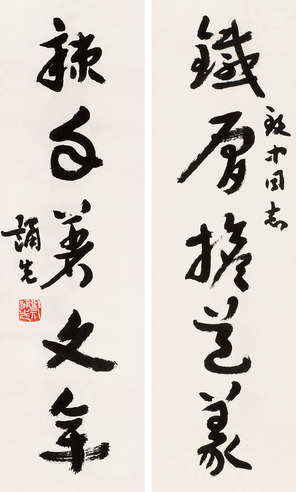 鐵肩擔道義
同志
辣手著文章
誦先